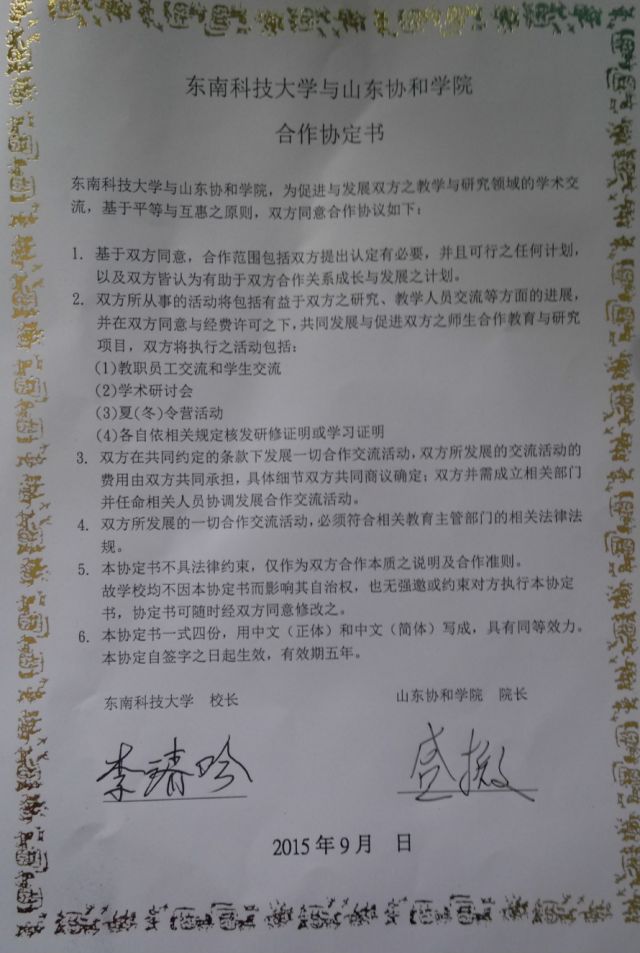 东南科技大学与山东协和学院
合作协定书
东南科技大学与山东协和学院，为促进与发展双方之教学与研究领域的学术交
流，基于平等与互惠之原则，双方同意合作协议如下：
1. 基于双方同意，合作范围包括双方提出认定有必要，并且可行之任何计划，
以及双方皆认为有助于双方合作关系成长与发展之计划。
2. 双方所从事的活动将包括有益于双方之研究、教学人员交流等方面的进展，
并在双方同意与经费许可之下，共同发展与促进双方之师生合作教育与研究
项目，双方将执行之活动包括：
(1)教职员工交流和学生交流
(2)学术研讨会
(3)夏(冬)令营活动
(4)各自依相关规定核发研修证明或学习证明
3. 双方在共同约定的条款下发展一切合作交流活动，双方所发展的交流活动的
费用由双方共同承担，具体细节双方共同商议确定；双方并需成立相关部门
并任命相关人员协调发展合作交流活动。
4. 双方所发展的一切合作交流活动，必须符合相关教育主管部门的相关法律法
规。
5. 本协定书不具法律约束，仅作为双方合作本质之说明及合作准则。
故学校均不因本协定书而影响其自治权，也无强邀或约束对方执行本协定
书，协定书可随时经双方同意修改之。
6. 本协定书一式四份，用中文（正体）和中文（简体）写成，具有同等效力。
本协定自签字之日起生效，有效期五年。
东南科技大学 校长 山东协和学院 院长
李清吟 盛振文
2015年9月 日